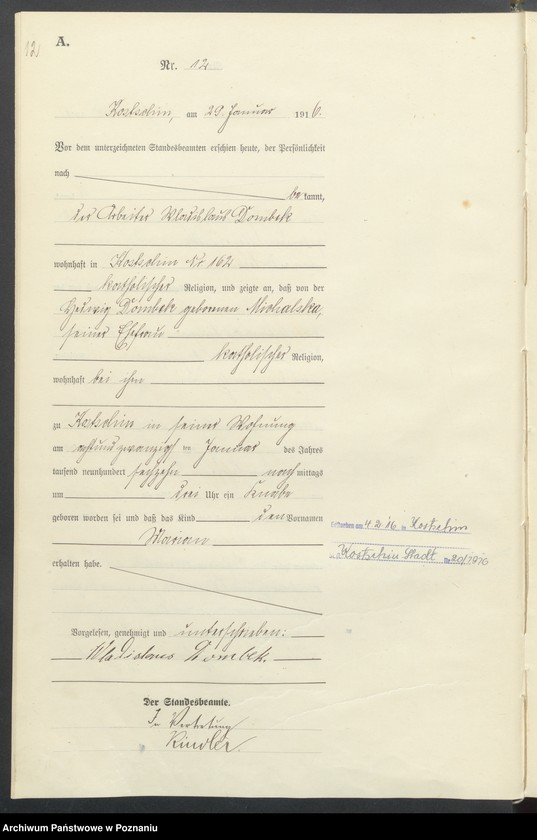 12
A.
Nr. 12
Kostschin, am 29 Januar 1916.
Vor dem unterzeichneten Standesbeamten erschien heute, der Persönlichkeit
nach
be kannt,
der Arbeiter Wladislaus Dombek
wohnhaft in Kostschin Nr 162
katholischer Religion, und zeigte an, daß von der
Hedwig Dombek geborenen Michalska,
seiner Ehefrau
katholischer Religion,
wohnhaft bei ihm
zu Kostschin in seiner Wohnung
am achtundzwanzigsten Januar des Jahres
tausend neunhundert sechzehn nach mittags
um drei Uhr ein Knabe
geboren worden sei und daß das Kind den Vornamen
Marian
erhalten habe.
Gestorben am 4.2.16 in Kostschin
Kostschin Stadt Nr 20/1916
Vorgelesen, genehmigt und unterschrieben:
Wladislaus Dombek.
Der Standesbeamte.
In Vertretung
Kindler.
Archiwum Państwowe w Poznaniu